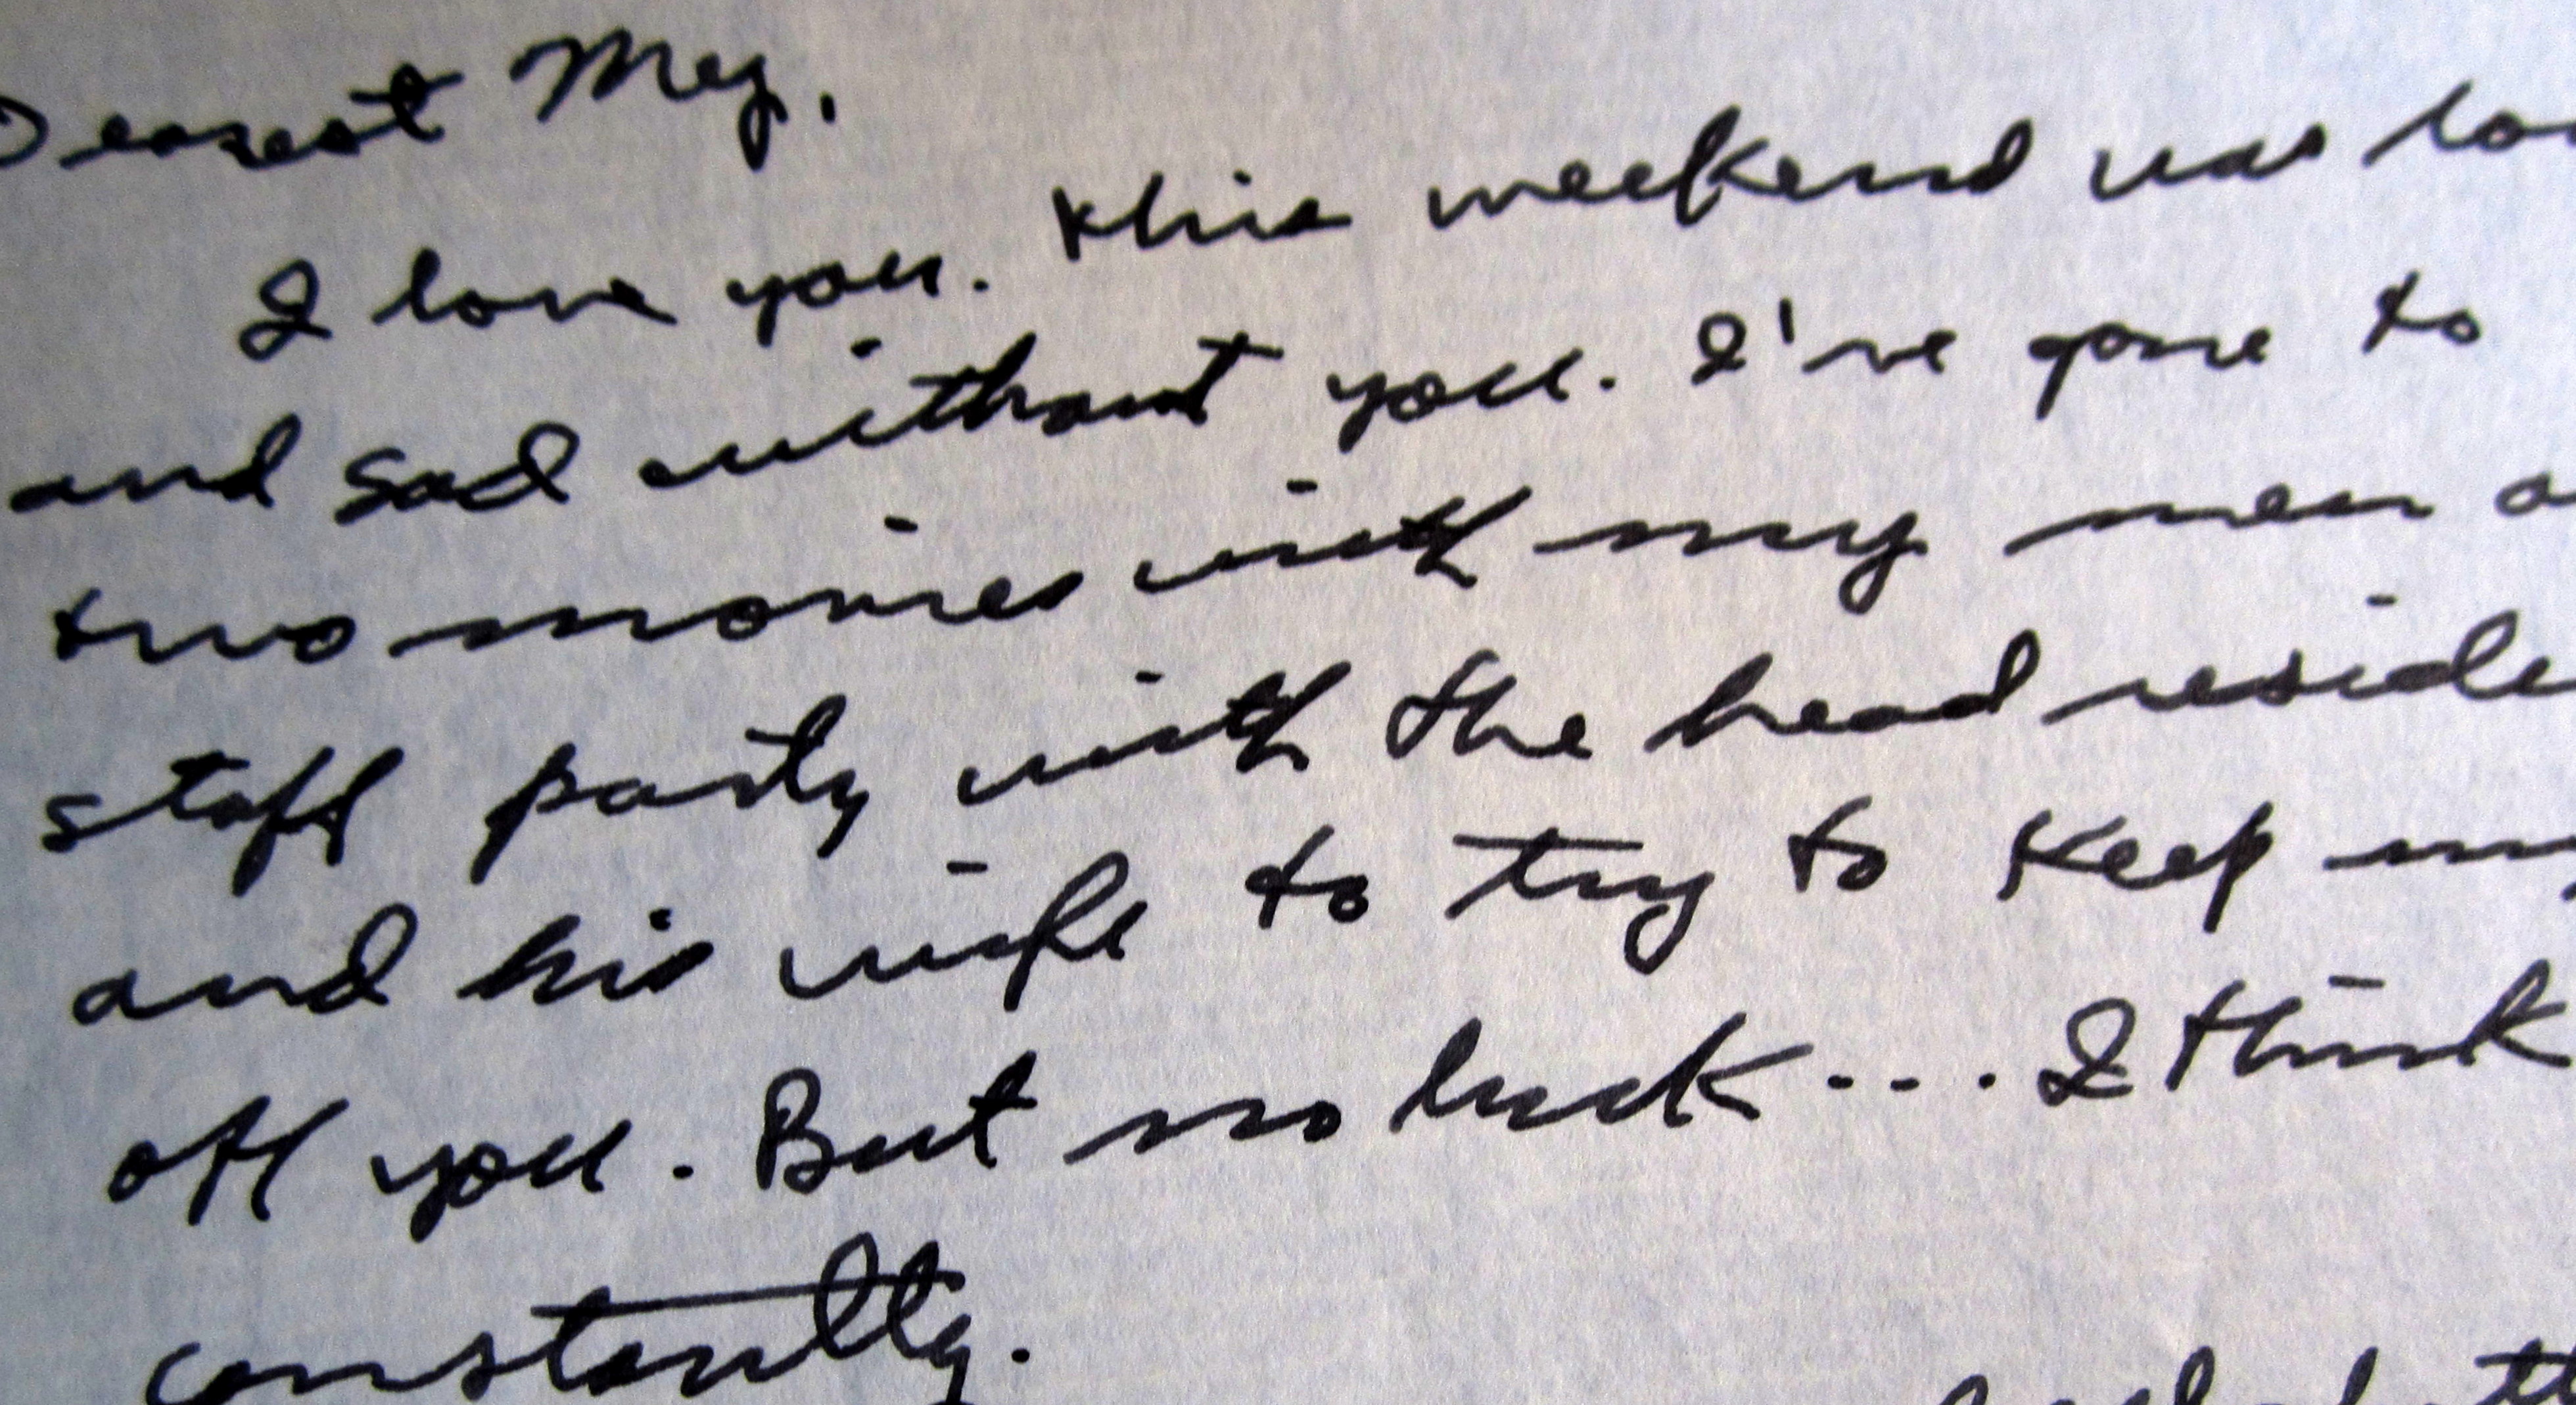 Dearest Meg,
I love you. This weekend was lo
and sad without you. I've gone to
two movies with my men a
staff party with the head reside
and his wife to try to keep m
off you. But no luck.... I think
constantly.